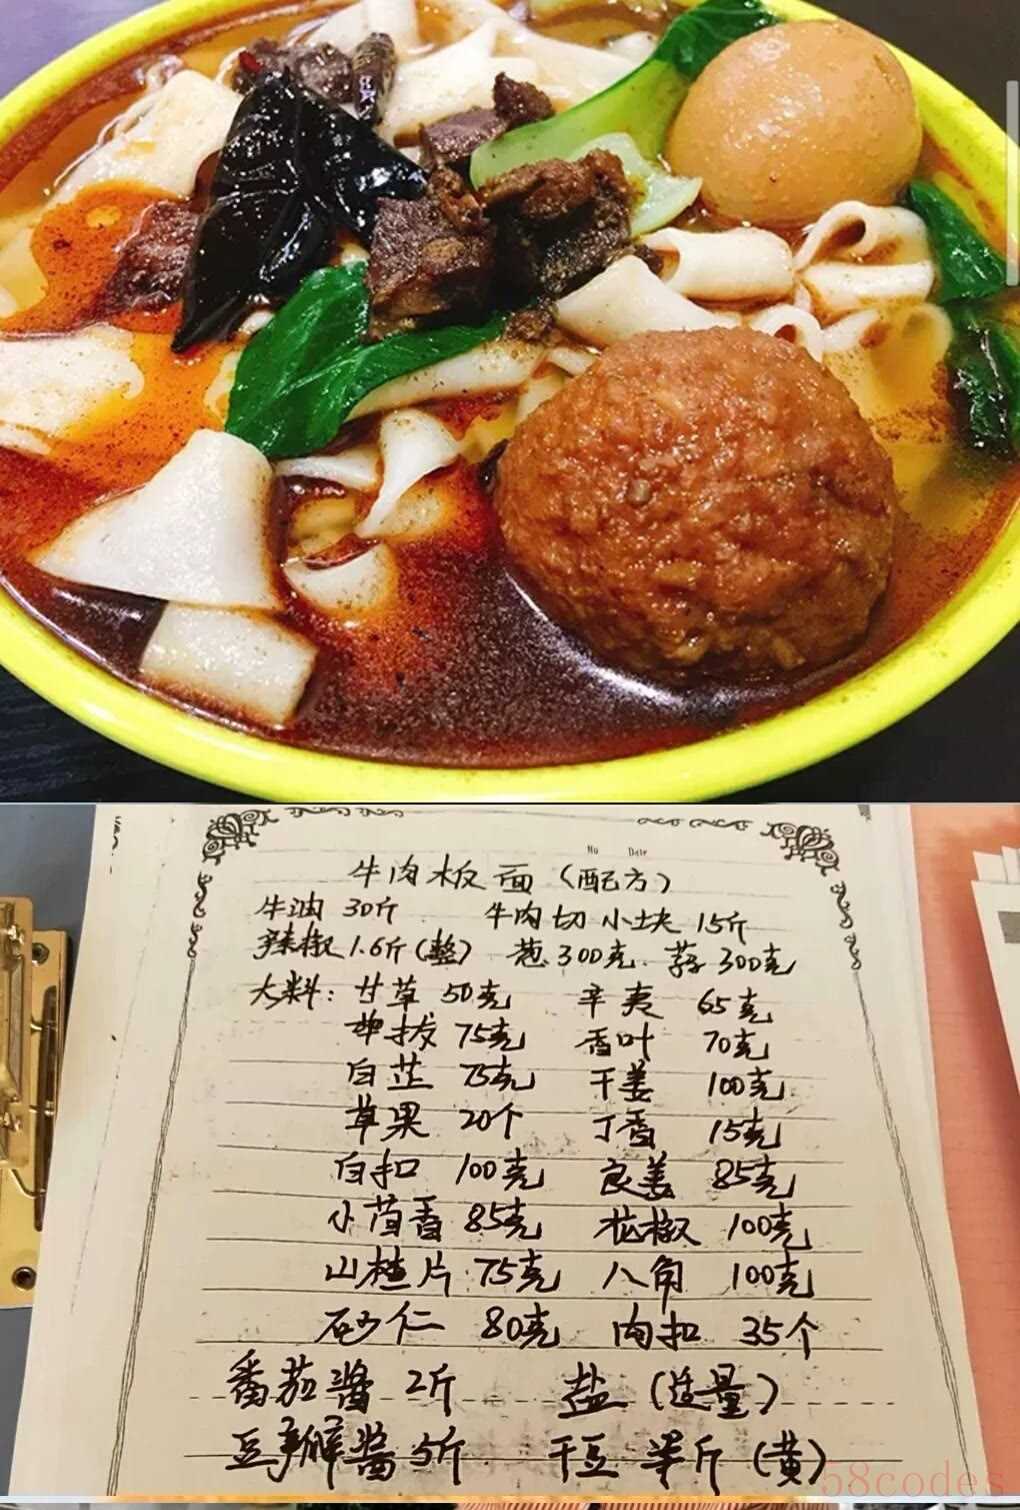 No Date
牛肉板面(配方)
牛油 30斤 牛肉切小块 15斤
辣椒 1.6斤(整) 葱300克. 蒜300克
大料: 甘草 50克 辛夷 65克
毕拔 75克 香叶 70克
白芷 75克 干姜 100克
草果 20个 丁香 15克
白扣 100克 良姜 85克
小茴香 85克 花椒 100克
山楂片 75克 八角 100克
砂仁 80克 肉扣 35个
番茄酱 2斤 盐(适量)
豆瓣酱 5斤 干豆 半斤(黄)
58codes